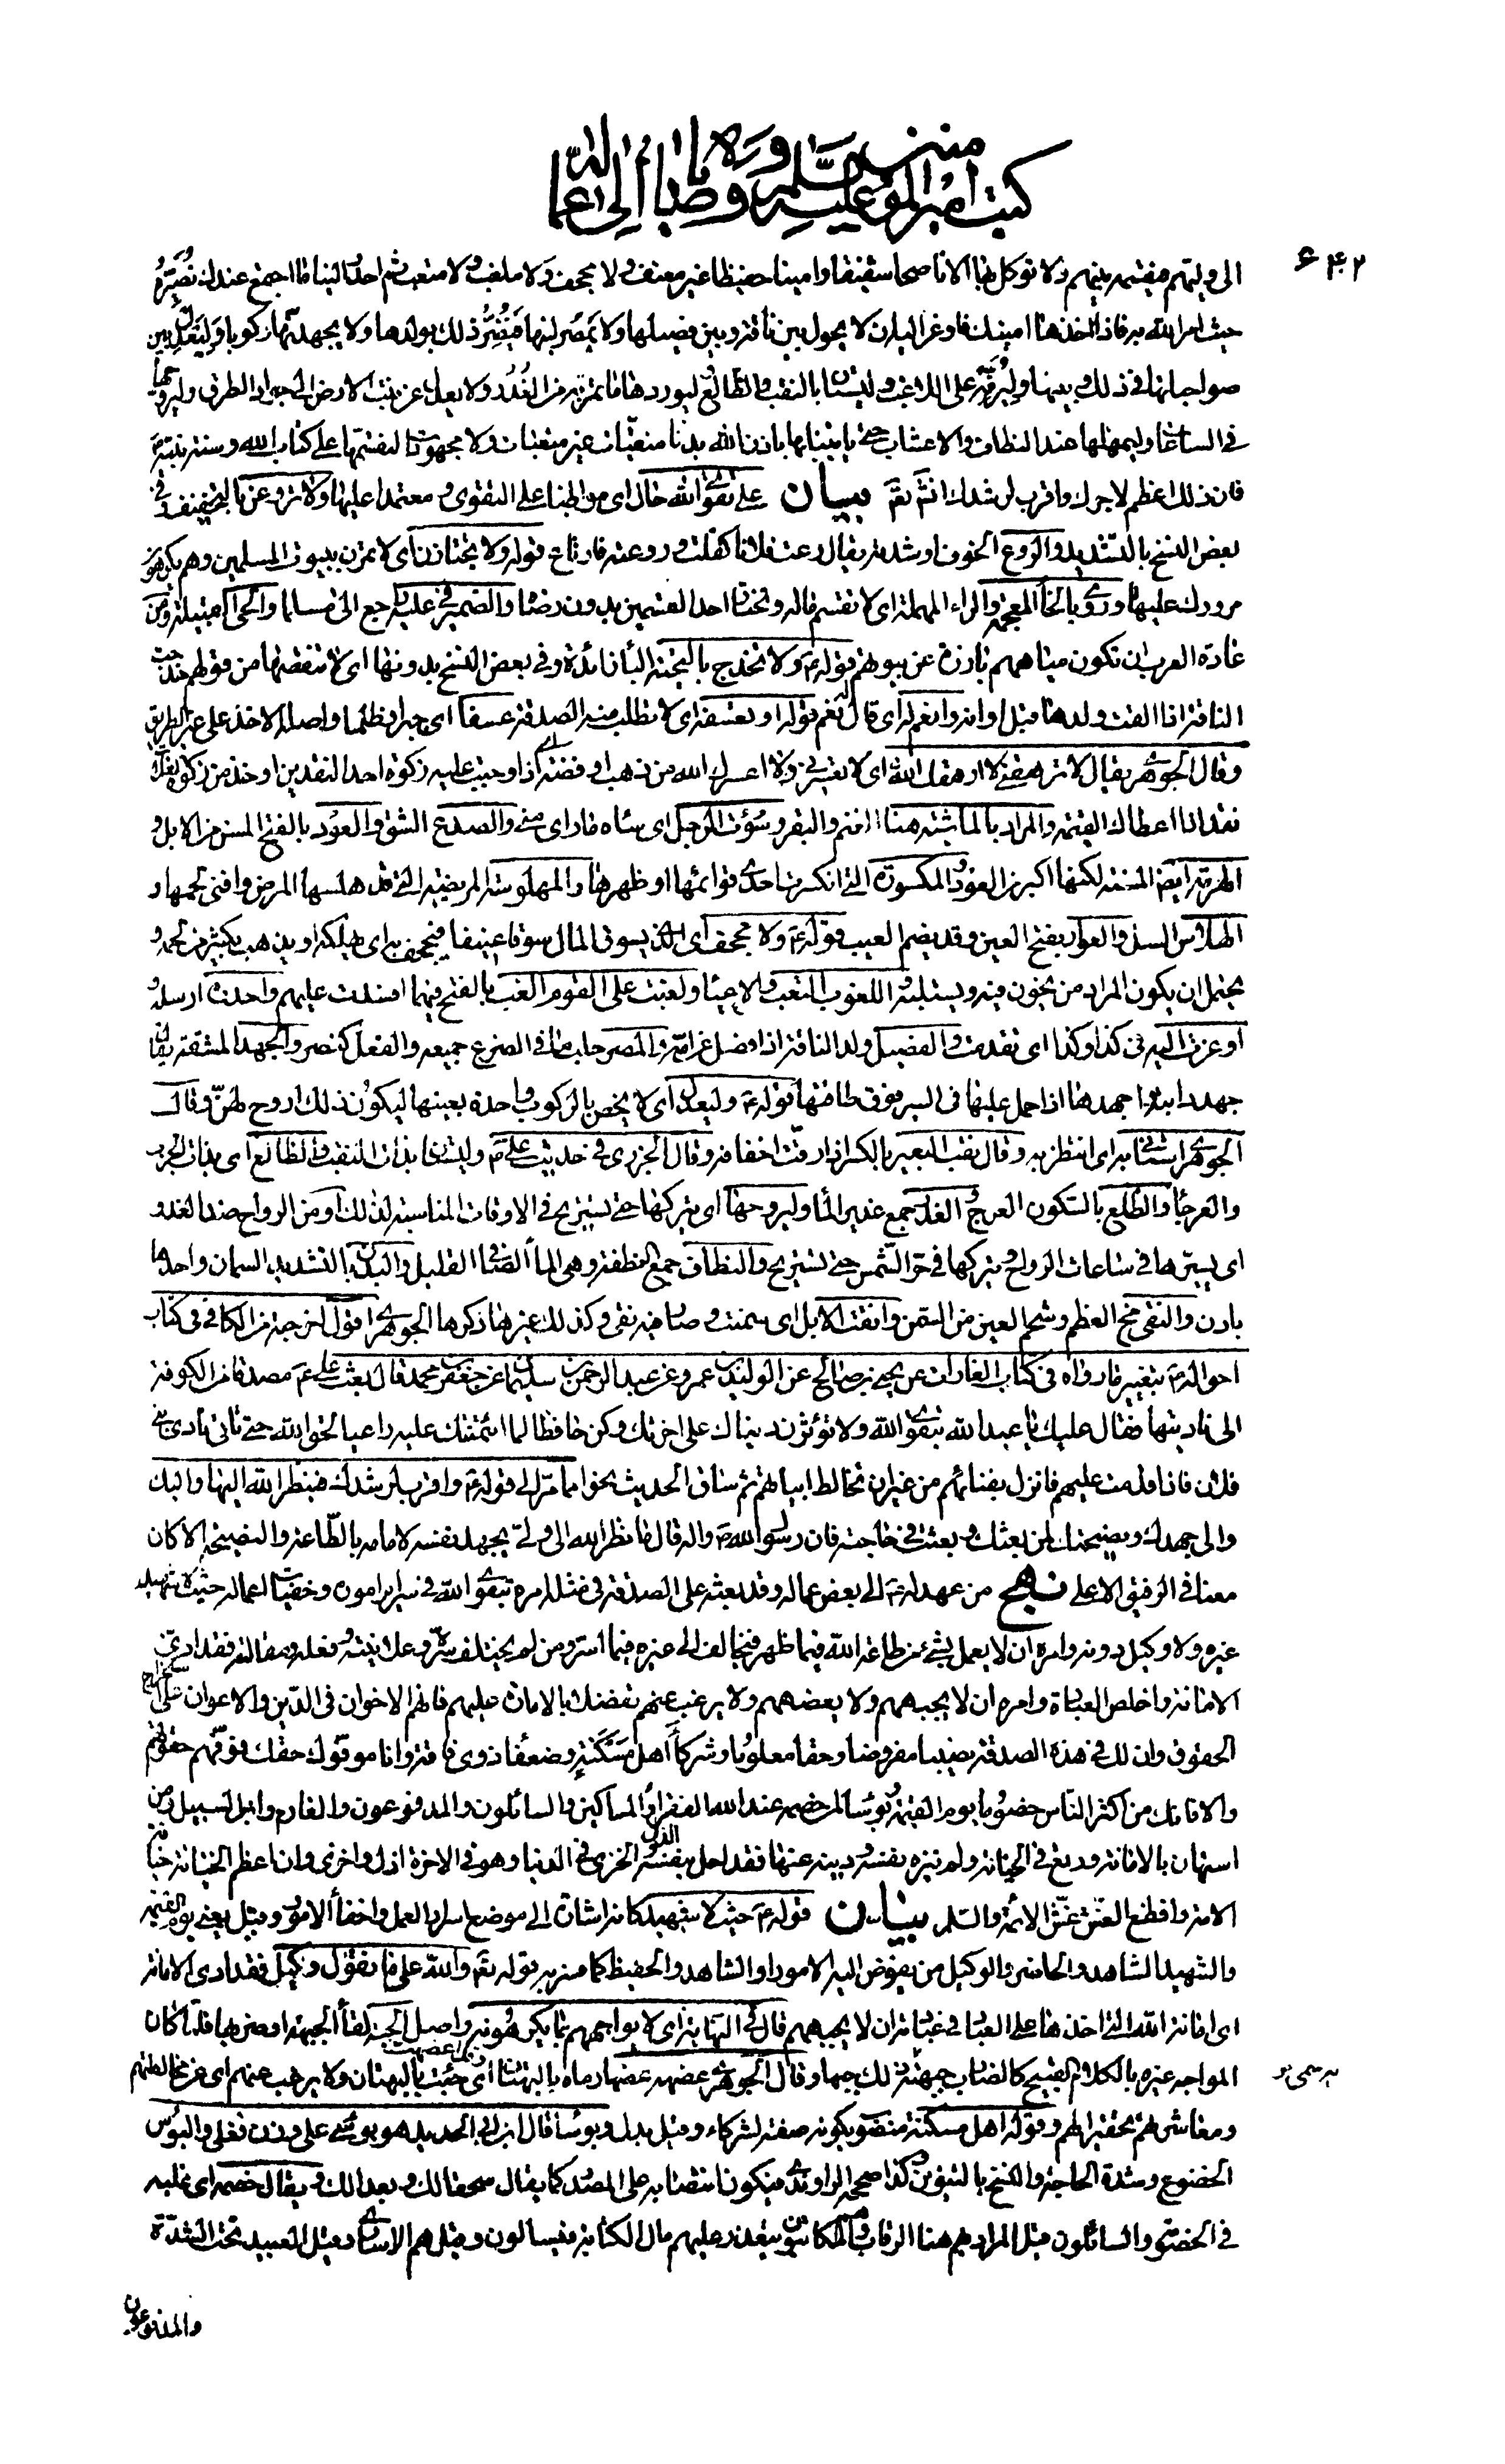 كتب امير المؤمنين عليه السلام ووصاياه الى عماله
۶۴۲
الى وليهم فيقسمه بينهم ولا توكل بها الا ناصحا شفيقا وامينا حفيظا غير معنف ولا مجحف ولا ملغب ولا متعب ثم احدر الينا ما اجتمع عندك نصيره
حيث امر الله به فاذا اخذها امينك فاوعز اليه ان لا يحول بين ناقة وبين فصيلها ولا يمصر لبنها فيضر ذلك بولدها ولا يجهدنها ركوبا وليعدل بين
صواحباتها في ذلك وبينها وليرفه على اللاغب وليستان بالنقب والظالع وليوردها ما تمر به من الغدر ولا يعدل بها عن نبت الارض الى جواد الطرق وليروحها
في الساعات وليمهلها عند النطاف والاعشاب حتى تاتينا بها باذن الله بدنا منقيات غير متعبات ولا مجهودات لنقسمها على كتاب الله وسنة نبيه
فان ذلك اعظم لاجرك واقرب لرشدك انش تع بيان على تقوى الله حال اى مواظبا على التقوى ومعتمدا عليها ولا تروعن بالتخفيف وفي
بعض النسخ بالتشديد والروع الخوف او شدته يقال رعت فلانا كقلت وروعته فارتاع قوله ولا تجتازن اى لا تمرن ببيوت المسلمين وهم يكرهون
مرورك عليها وروى بالخاء المعجمة والراء المهملة اى لا تقسم ماله وتختار احد القسمين بدون رضاه والضمير في عليه راجع الى مسلما والحى القبيلة ومن
عادة العرب ان تكون مياههم بارزة عن بيوتهم قوله ع ولا تخدج بالتحية الباء زائدة وفي بعض النسخ بدونها اى لا تنقصها من قولهم خدجت
الناقة اذا القت ولدها قبل اوانه وانعم له اى قال نعم قوله او تعسفه اى لا تطلب منه الصدقة عسفا اى جبرا وظلما واصله الاخذ على غير الطريق
وقال الجوهرى يقال لا ترهقنى لا ارهقك الله اى لا تعسرنى لا اعسرك الله من ذهب او فضة اى اذا وجبت عليه زكوة احد النقدين او خذ من زكوة الغلات
نقدا اذا اعطاك القيمة والمراد بالماشية هنا الغنم والبقر وسؤت الرجل اى ساه ما راى منى والصدع الشق والعود بالفتح المسن من الابل و
الهرمة ايضا المسنة لكنها اكبر من العود والمكسورة التى انكسرت احدى قوائمها او ظهرها والمهلوسة المريضة التى قد هلسها المرض وافنى لحمها و
الهلاس السل والعوار بفتح العين وقد يضم العيب قوله ع ولا مجحف اى الذى يسوق المال سوقا عنيفا فيجحف به اى يهلكه او يذهب بكثير من لحمه و
يحتمل ان يكون المراد من يخون فيه ويستلبه واللغوب التعب والاعياء ولغبت على القوم الغب بالفتح فيهما افسدت عليهم واحدره ارسله و
اوعزت اليه في كذا وكذا اى تقدمت والفصيل ولد الناقة اذا فصل عن امه والمصر حلب ما في الضرع جميعه والفعل كنصر والجهد المشقة يقال
جهد دابته واجهدها اذا حمل عليها في السير فوق طاقتها قوله ع وليعدل اى لا يخص بالركوب واحدة بعينها ليكون ذلك اروح لهن وقال
الجوهرى استانى به اى انتظر به وقال نقب البعير بالكسر اذا رقت اخفافه وقال الجزرى في حديث على ع وليستان بذات النقب والظالع اى بذات الجرب
والعرجاء والظلع بالسكون العرج والغدر جمع غدير الماء وليروحها اى يتركها حتى تستريح في الاوقات المناسبة لذلك او من الرواح ضد الغدو
اى يسيرها في ساعات الرواح ويتركها في حر الشمس حتى تستريح والنطاف جمع النطفة وهى الماء الصافى القليل والبدن بالتشديد السمان واحدها
بادن والنقى مخ العظم وشحم العين من السمن وانقت الابل اى سمنت وصار فيه نقى وكذلك غيرها ذكرها الجوهرى اقول اخرجته من الكافى في كتاب
احواله ع بتغيير ما ورواه في كتاب الغارات عن يحيى بن صالح عن الوليد بن عمرو عن عبد الرحمن بن سليمان عن جعفر بن محمد قال بعث على ع مصدقا من الكوفة
الى باديتها فقال عليك يا عبد الله بتقوى الله ولا تؤثرن دنياك على اخرتك وكن حافظا لما ائتمنتك عليه راعيا لحق الله حتى تاتى نادى بنى
فلان فاذا قدمت عليهم فانزل بفنائهم من غير ان تخالط ابياتهم ثم ساق الحديث نحوا مما مر الى قوله ع واقرب لرشدك فينظر الله اليها واليك
والى جهدك ونصيحتك لمن بعثك وبعثت في حاجته فان رسول الله ص واله قال ما نظر الله الى ولى يجهد نفسه لامامه بالطاعة والنصيحة الا كان
معنا في الرفيق الاعلى نهج من عهد له ع الى بعض عماله وقد بعثه على الصدقة في مثله امره بتقوى الله في سراير اموره وخفيات اعماله حيث لا شهيد
غيره ولا وكيل دونه وامره ان لا يعمل بشئ من طاعة الله فيما ظهر فيخالف الى غيره فيما اسر ومن لم يختلف سره وعلانيته وفعله ومقالته فقد ادى
الامانة واخلص العبادة وامره ان لا يجبههم ولا يعضههم ولا يرغب عنهم تفضلا بالامارة عليهم فانهم الاخوان في الدين والاعوان على استخراج
الحقوق وان لك في هذه الصدقة نصيبا مفروضا وحقا معلوما وشركاء اهل مسكنة وضعفاء ذوى فاقة وانا موفوك حقك فوفهم حقوقهم
والا فانك من اكثر الناس خصوما يوم القيمة وبؤسا لمن خصمه عند الله الفقراء والمساكين والسائلون والمدفوعون والغارم وابن السبيل ومن
استهان بالامانة ورتع في الخيانة ولم ينزه نفسه ودينه عنها فقد احل بنفسه الذل الخزى في الدنيا وهو في الاخرة اذل واخزى وان اعظم الخيانة خيانة
الامة وافظع الغش غش الائمة والسلم بيان قوله ع حيث لا شهيد كانه اشارة الى موضع اسرار العمل واخفاء الامور وقيل يعنى يوم القيمة
والشهيد الشاهد والحاضر والوكيل من يفوض اليه الامور او الشاهد والحفيظ كما فسر به قوله تع والله على ما نقول وكيل فقد ادى الامانة
اى امانة الله التى اخذها على العباد في عبادته ان لا يجبههم قال في النهاية اى لا يواجههم بما يكرهونه واصل الجبه لقاء الجبهة او ضربها فلما كان
المواجه غيره بالكلام القبيح كالضارب جبهته به سمى ذلك جبها وقال الجوهرى عضهه عضها رماه بالبهتان وقد اعضهت اى جئت بالبهتان ولا يرغب عنهم اى عن مخالطتهم
ومعاشرتهم تحقيرا لهم وقوله اهل مسكنة منصوب بكونه صفة لشركاء وقيل بدل وبؤسا قال ابن ابى الحديد هو بؤسى على وزن فعلى والبؤس
الخضوع وشدة الحاجة والنسخ بالتنوين كذا صححه الراوندى فيكون انتصابه على المصدر كما يقال سحقا لك وبعدا لك ويقال خصمه اى غلبه
في الخصومة والسائلون قيل المراد بهم هنا الرقاب وهم المكاتبون يتعذر عليهم مال الكتابة فيسالون وقيل هم الاسارى وقيل العبيد تحت الشدة
والمدفوعون